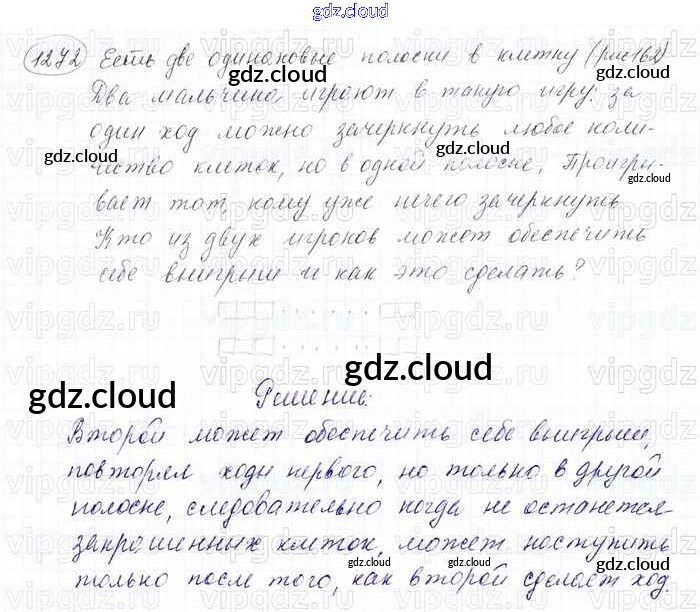 gdz.cloud
1272 Есть две одинаковые полоски в клетку (рис 162)
Два мальчика играют в такую игру: за
один ход можно зачеркнуть любое коли-
чество клеток, но в одной полоске. Проигры-
вает тот, кому уже нечего зачеркнуть
Кто из двух игроков может обеспечить
себе выигрыш и как это сделать?
Решение:
Второй может обеспечить себе выигрыш,
повторяя ходы первого, но только в другой
полоске, следовательно когда не останется
закрашенных клеток, может наступить
только после того, как второй сделает ход.